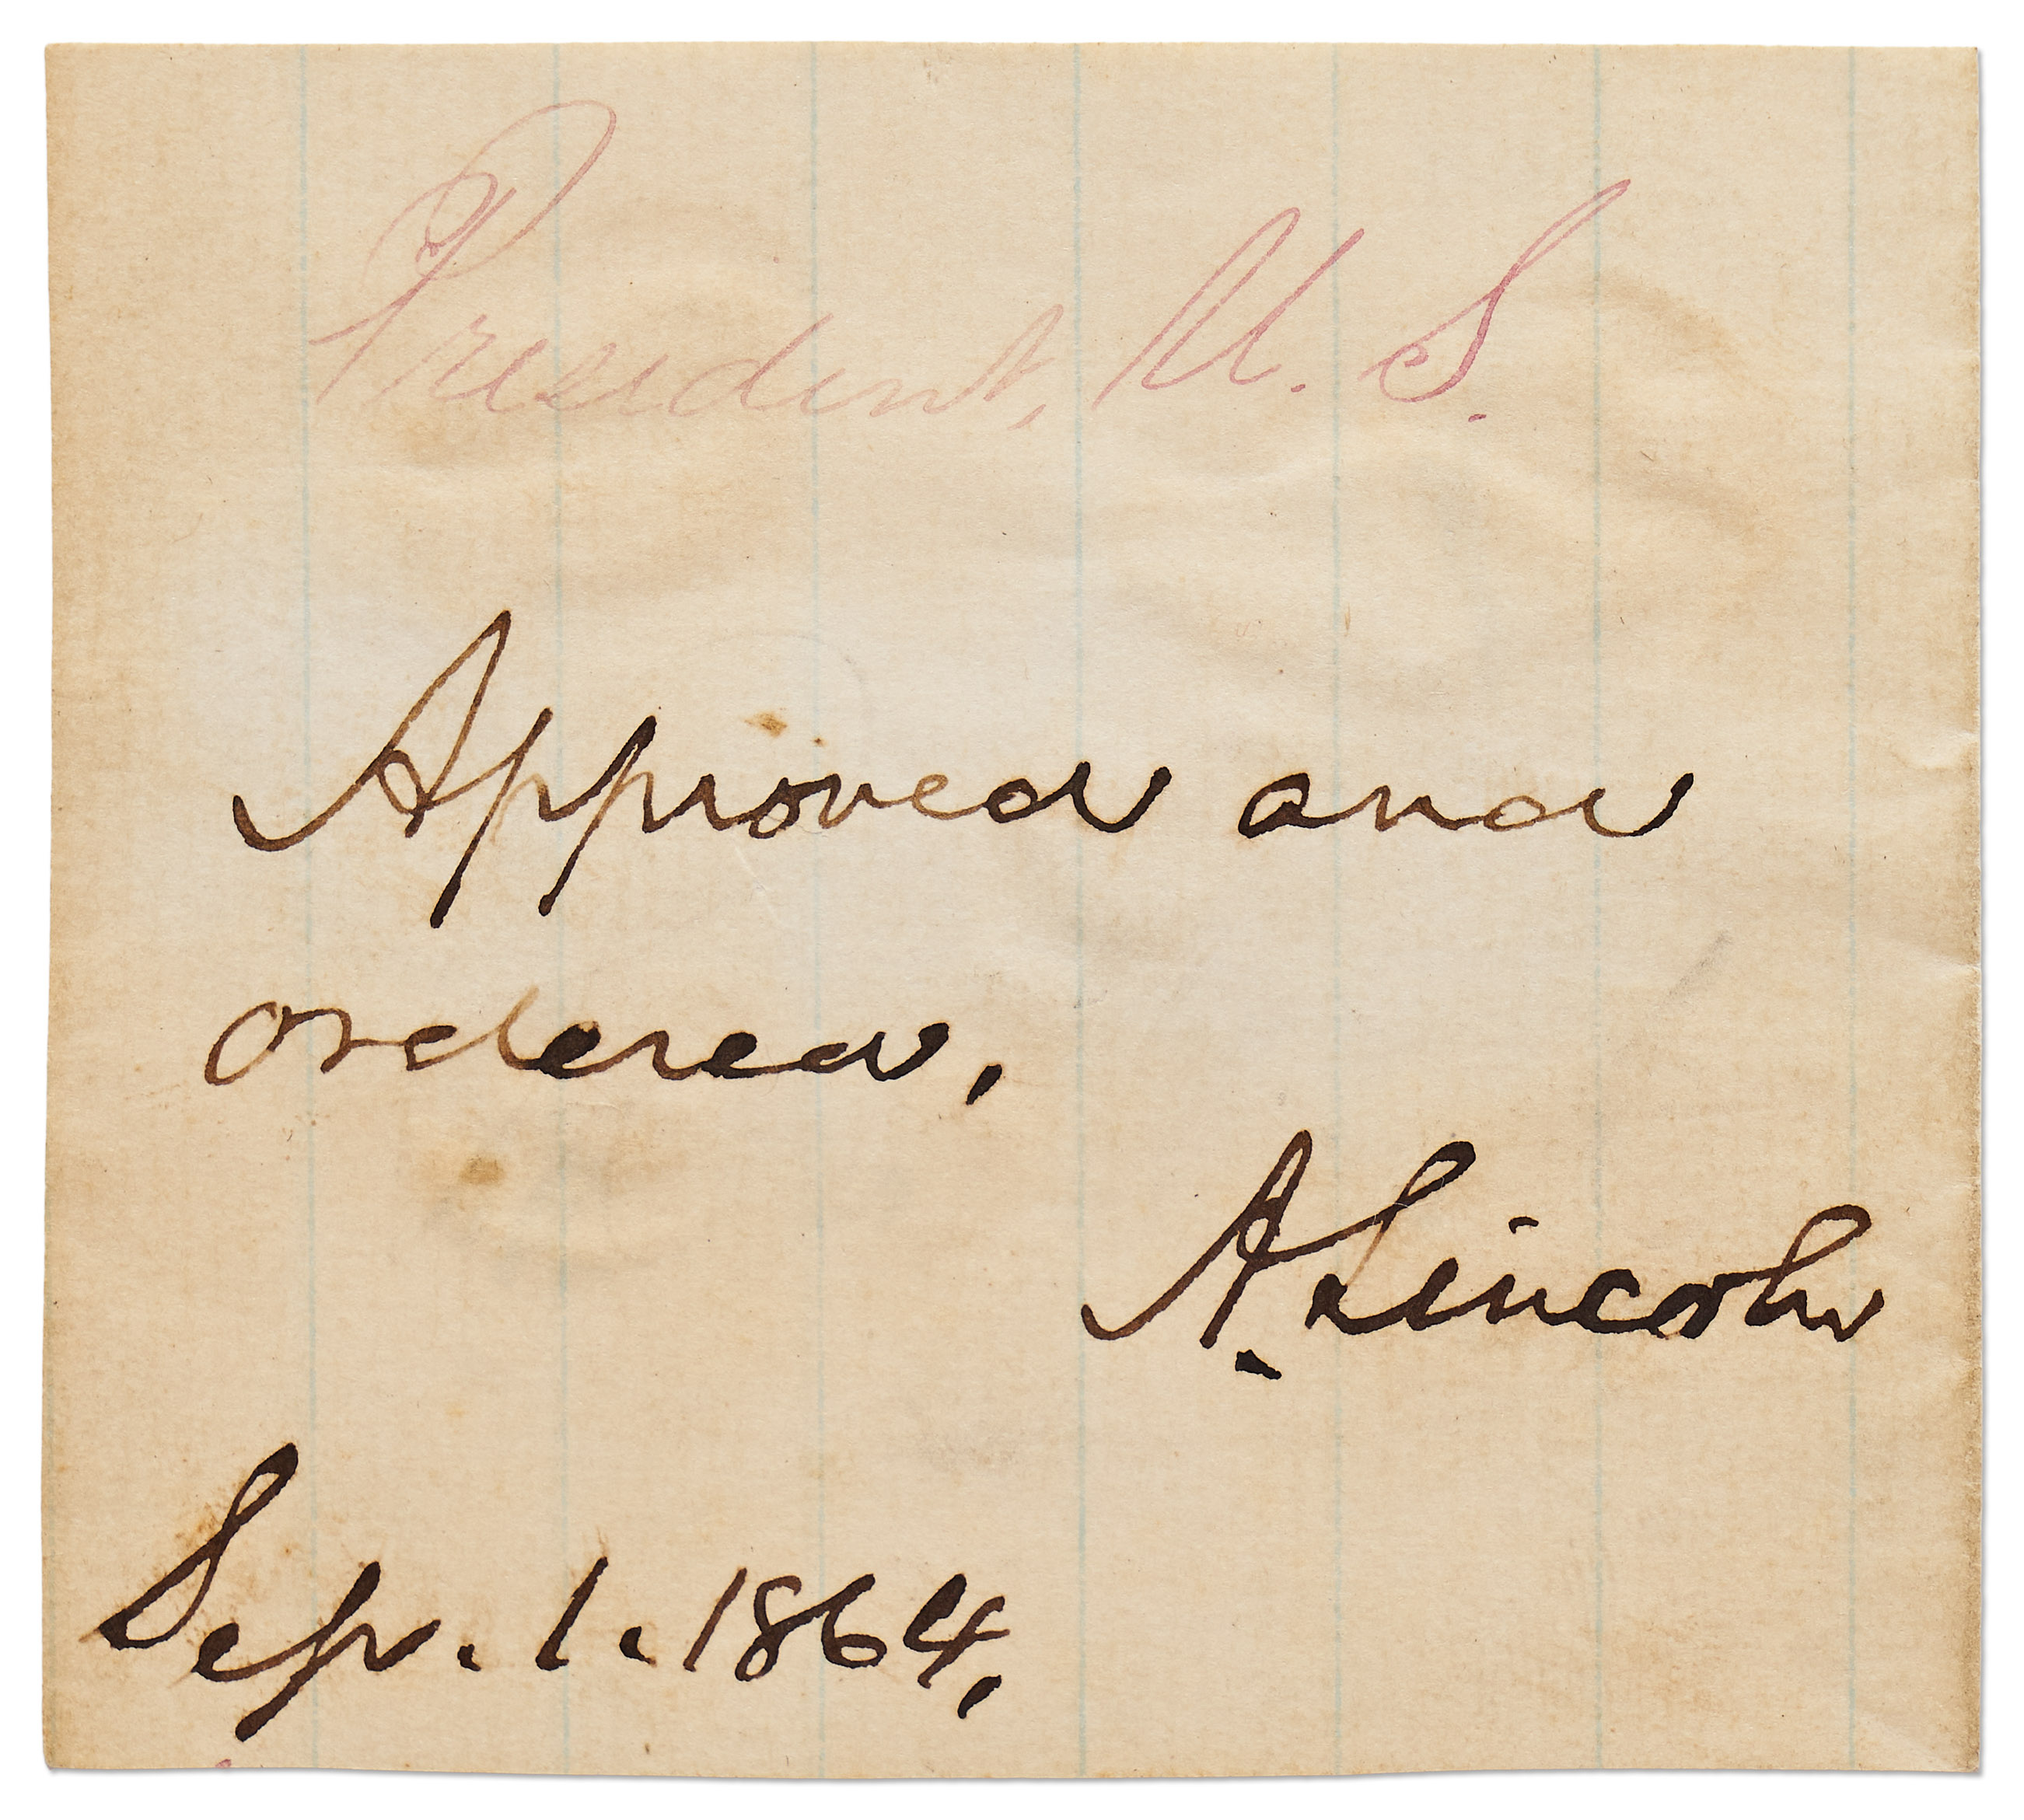 President, U. S.
Approved and
ordered.
A. Lincoln
Sep. 1. 1864.